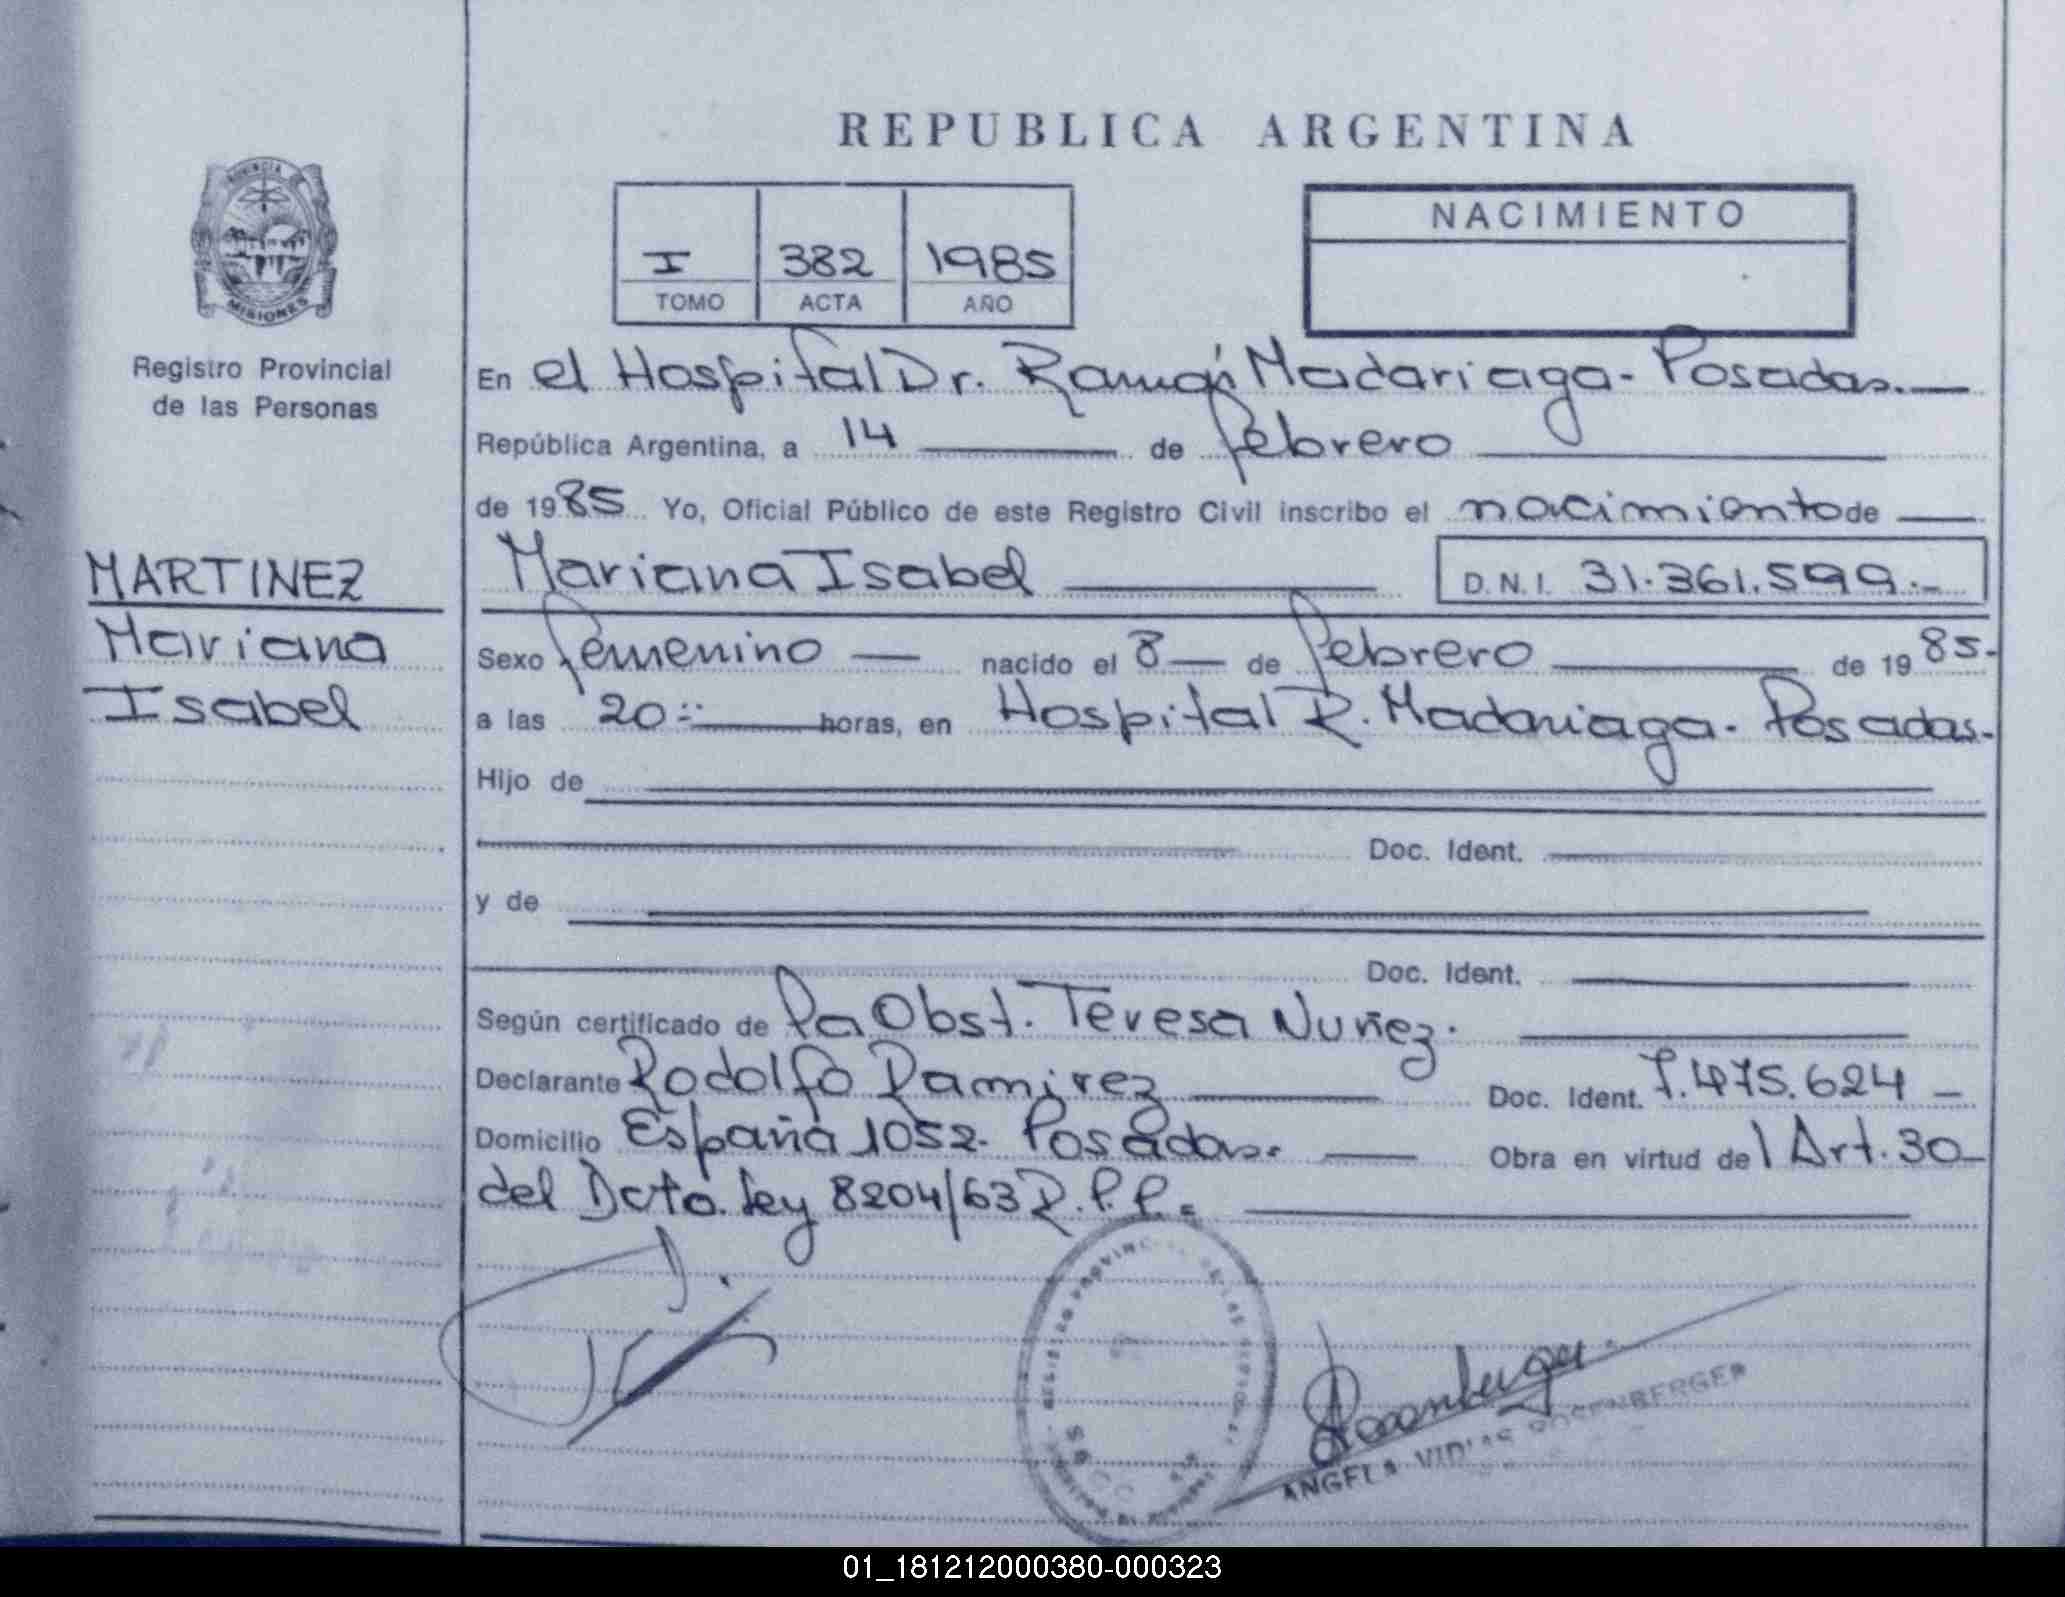 REPUBLICA ARGENTINA
PROVINCIA
MISIONES
Registro Provincial
de las Personas
I 382 1985
TOMO ACTA AÑO
NACIMIENTO
En el Hospital Dr. Ramón Madariaga- Posadas.
República Argentina, a 14 de febrero
de 1985 Yo, Oficial Público de este Registro Civil inscribo el nacimiento de
MARTINEZ
Mariana
Isabel
Mariana Isabel D.N.I. 31.361.599.-
Sexo femenino nacido el 8 de febrero de 1985.
a las 20 horas, en Hospital R. Madariaga- Posadas.
Hijo de
Doc. Ident.
y de
Doc. Ident.
Según certificado de Pa Obst. Teresa Nuñez.
Declarante Rodolfo Ramirez Doc. Ident. 7.475.624
Domicilio España 1052- Posadas. Obra en virtud del Art. 30
del Dcto. Ley 8204/63 R.P.P.
Rosenberger
ANGELA VIDIAS ROSENBERGER
01_181212000380-000323